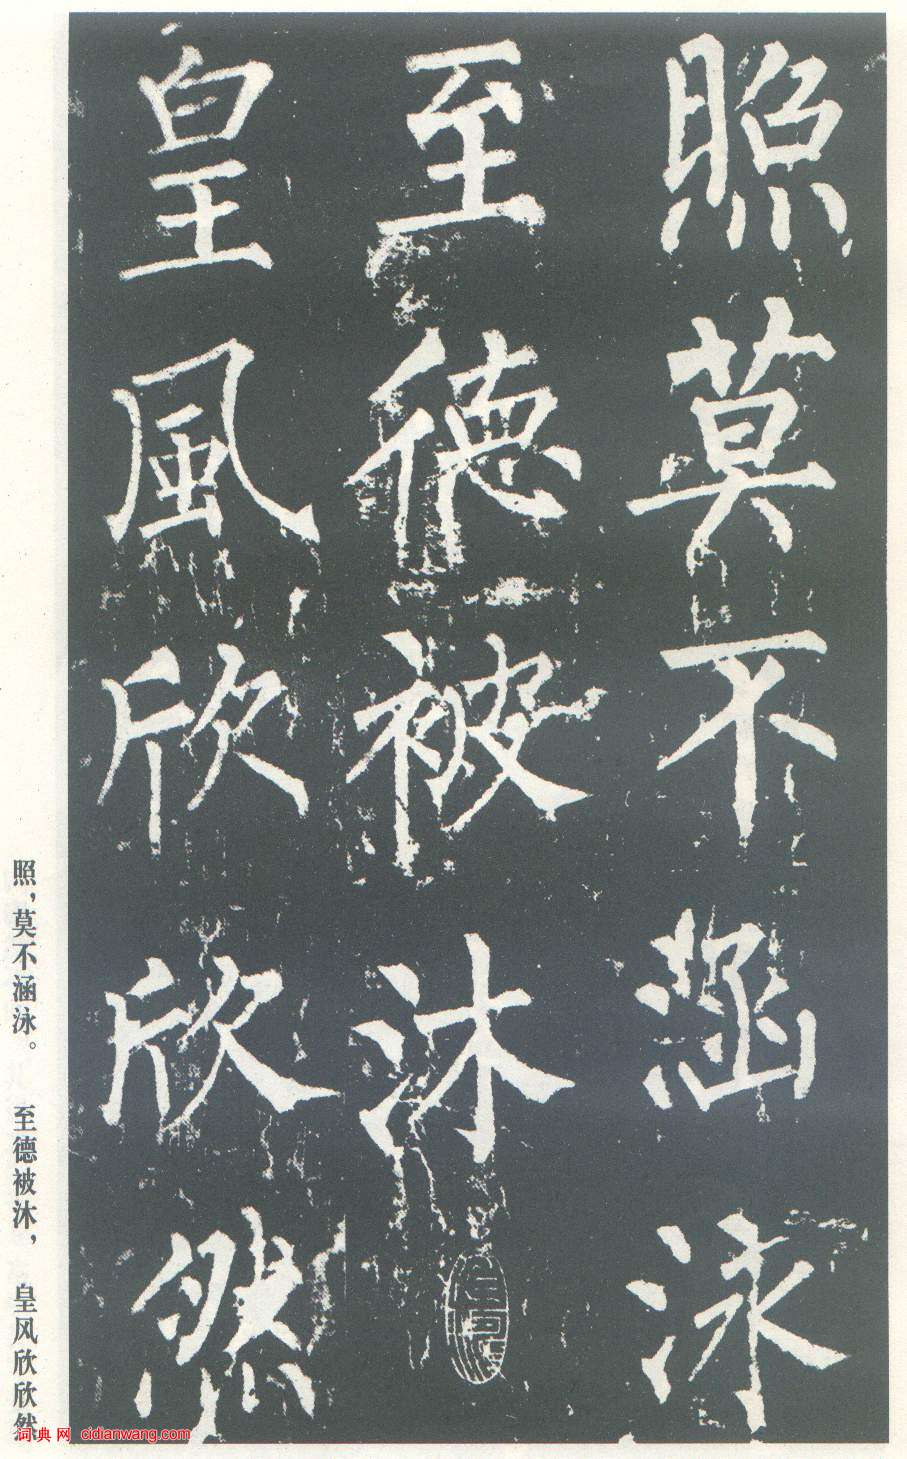 照莫不涵泳
至德被沐
皇風欣欣然
照，莫不涵泳。至德被沐，皇风欣欣然
词典网 cidianwang.com